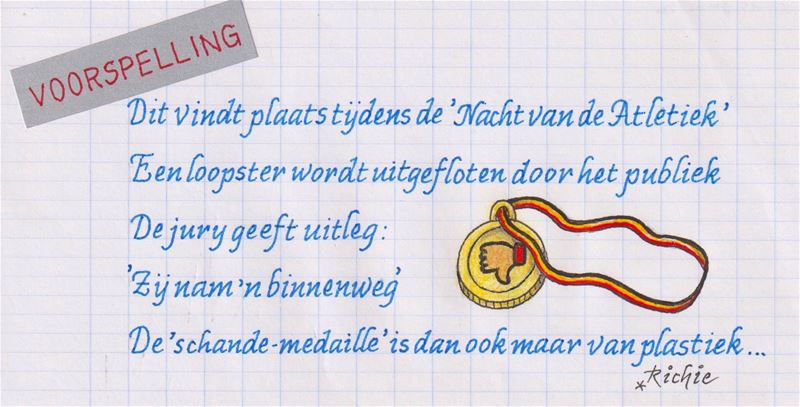 VOORSPELLING
Dit vindt plaats tijdens de 'Nacht van de Atletiek'
Een loopster wordt uitgefloten door het publiek
De jury geeft uitleg:
'Zij nam 'n binnenweg'
De 'schande-medaille' is dan ook maar van plastiek...
*Richie